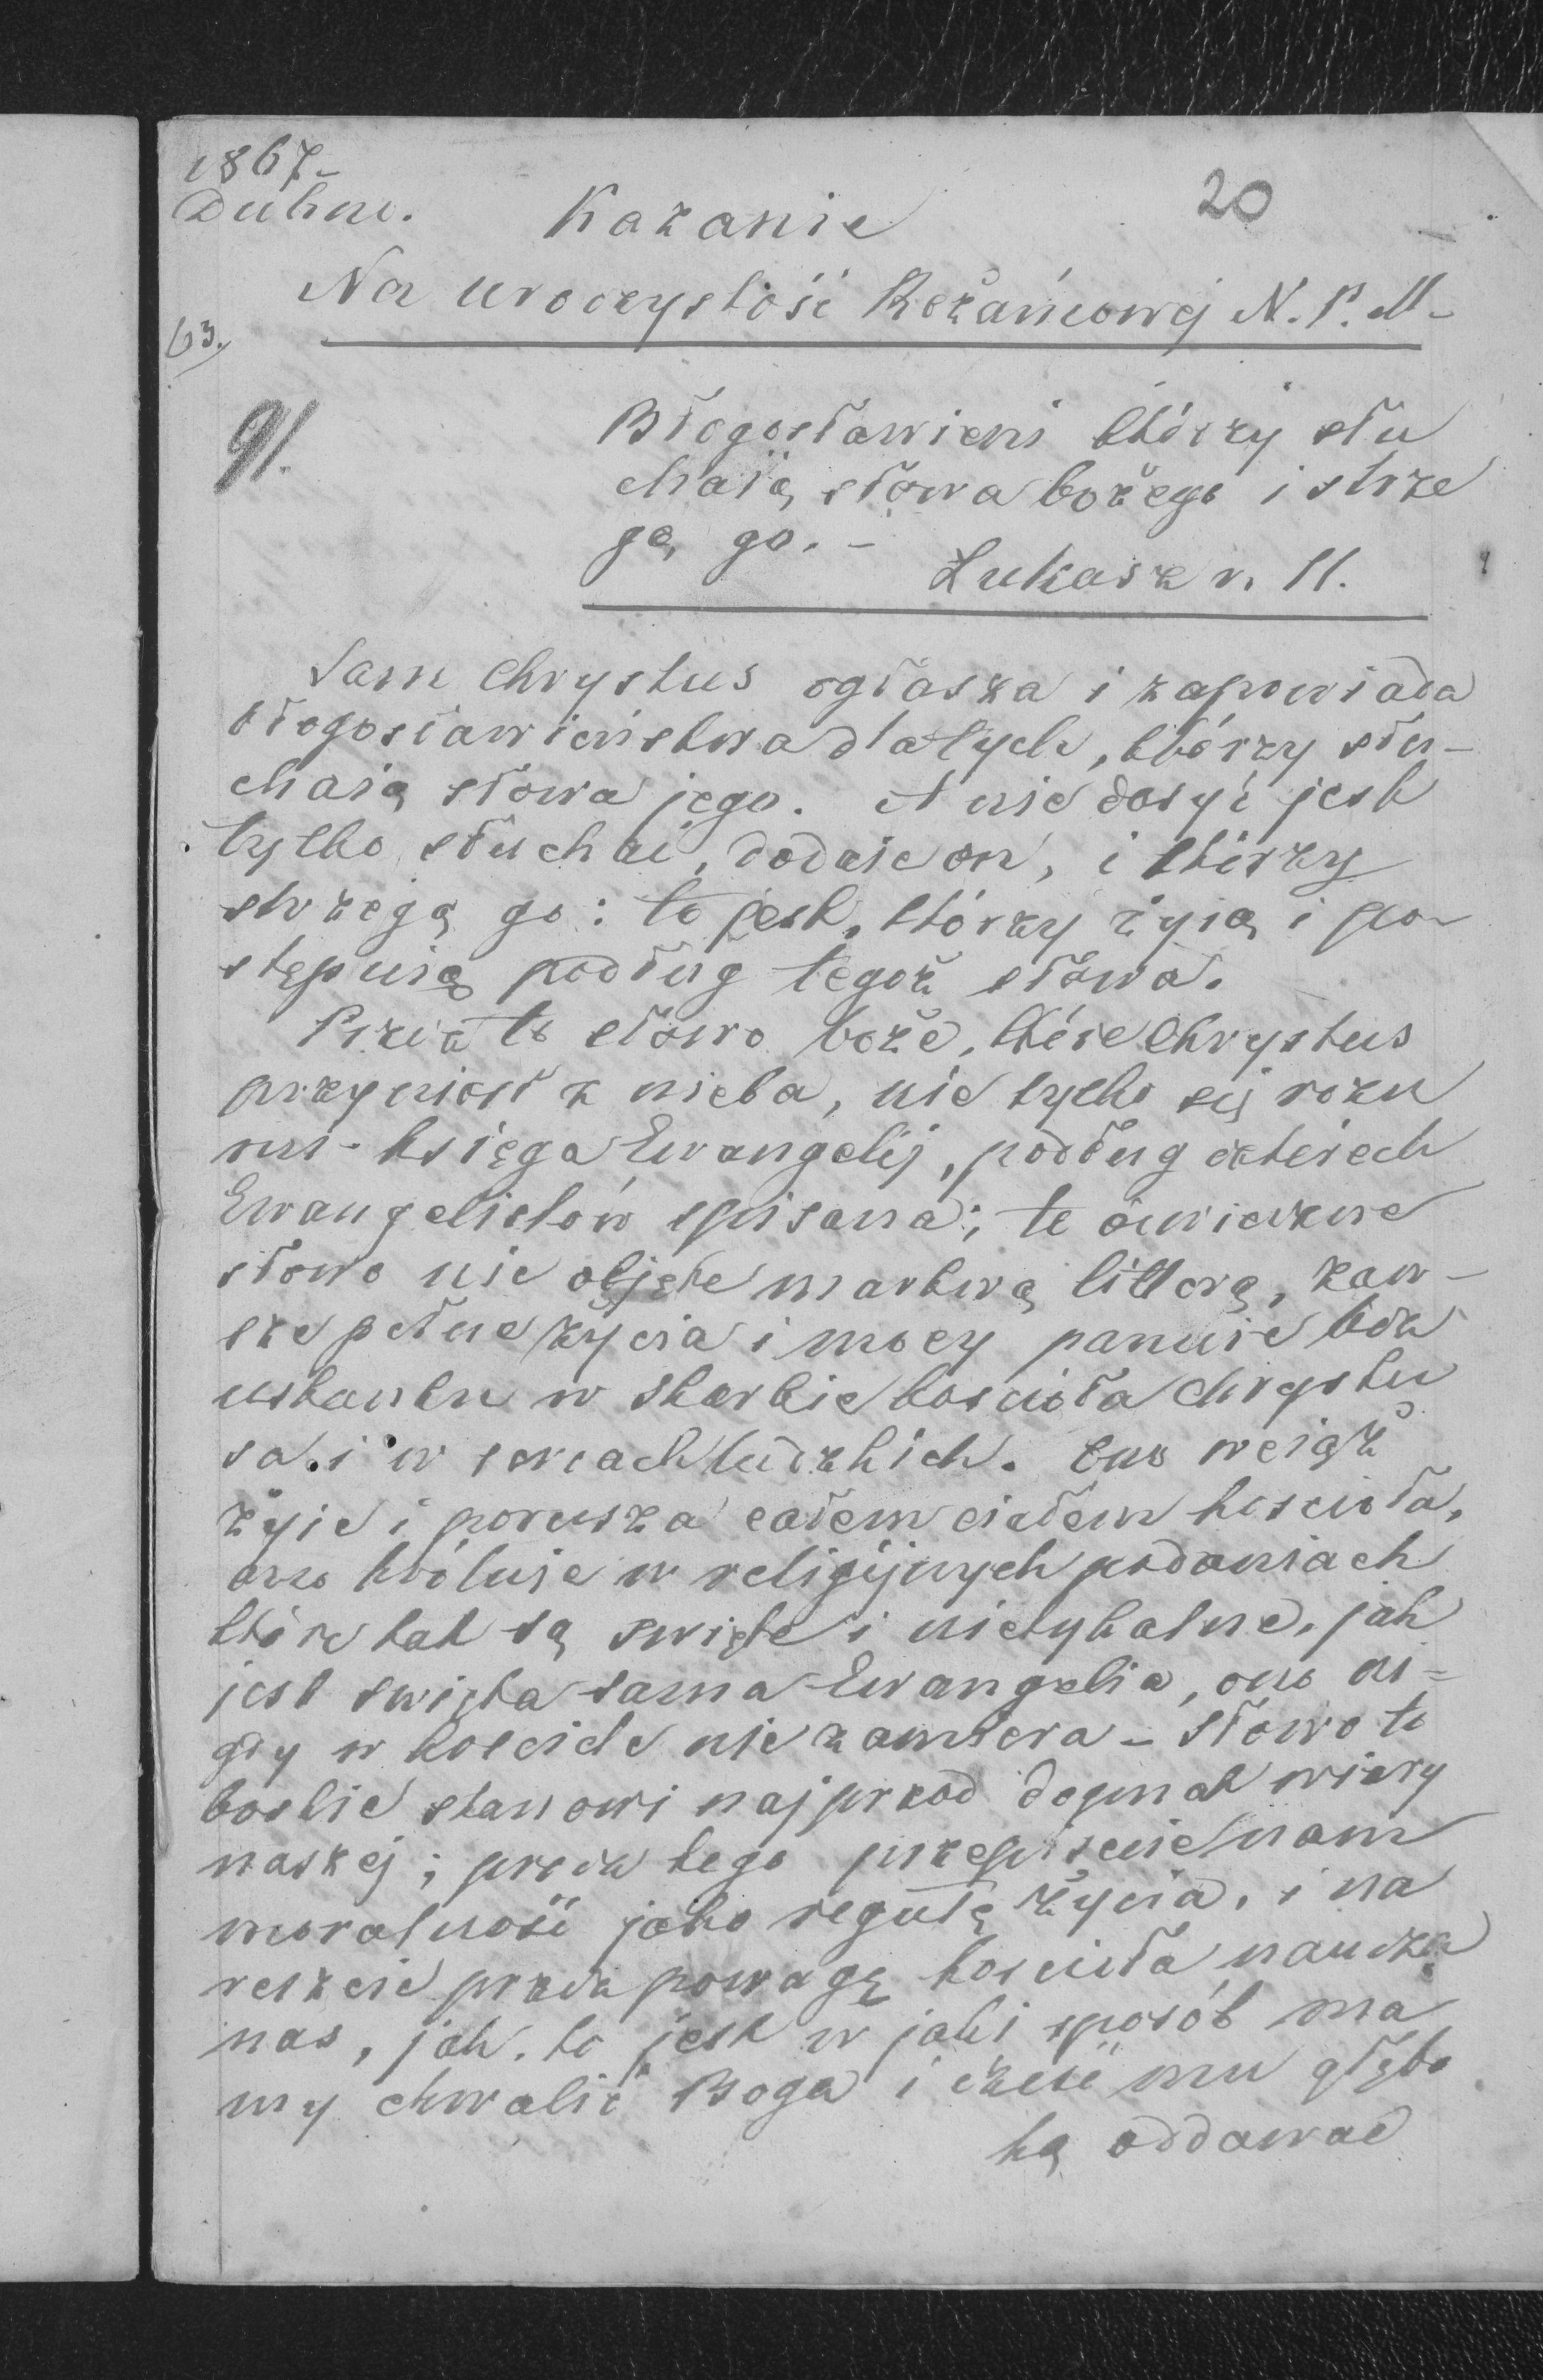 1867-
Dubno.
20
Kazanie
Na uroczystość Rożańcowej N. P. M-
63.
91.
Błogosławieni którzy słu
chaią słowa bożego i strze
gą go. -
Łukasz r. 11.
Sam Chrystus ogłasza i zapowiada
błogosławieństwa dla tych, którzy słu-
chaią słowa jego. A nie dosyć jest
tylko słuchać, dodaie on, i którzy
strzegą go: to jest, którzy żyią i po-
stępuią podług tegoż słowa.
Przez to słowo boże, które Chrystus
przyniosł z nieba, nie tylko się rozu
mi - księga Ewangelij, podług czterech
Ewangelistów spisana; te
słowo nie objęte martwą litterą, zaw-
sze pełne życia i mocy panuie bez
ustanku w skarbie kościoła Chrystu
sa. i w sercach ludzkich. Ono wciąż
żyie i porusza całem ciałem kościoła,
ono króluie w religijnych podaniach
które tak są swięte i nietykalne, jak
jest swięta sama Ewangelia, ono ni-
gdy w kościele nie zamiera - Słowo to
boskie stanowi najprzod dogmat wiary
naszej; prócz tego przepisuie nam
moralność jako regułę życia, i na
reszcie przez powagę kościoła naucza
nas, jak. to jest w jaki sposób ma
my chwalić Boga i cześć mu głębo
ką oddawać